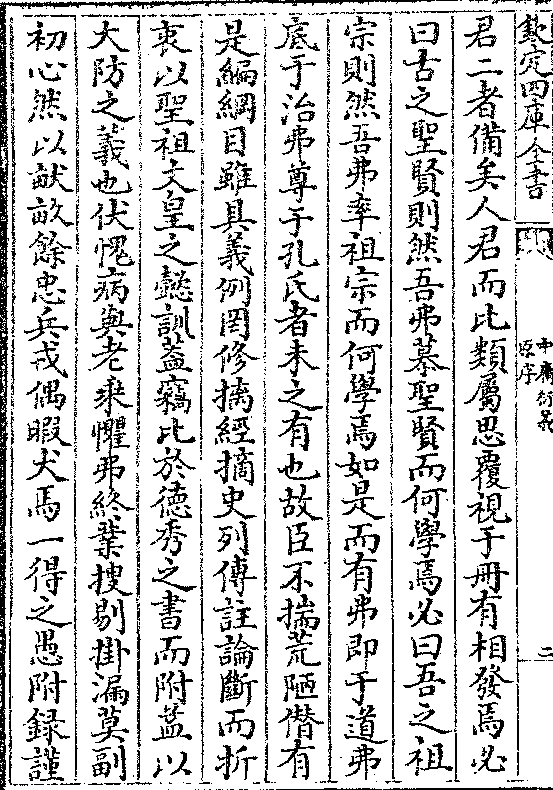 欽定四庫全書
中庸衍義
原序
二
君二者備矣人君而比類屬思覆視于冊有相發焉必
曰古之聖賢則然吾弗慕聖賢而何學焉必曰吾之祖
宗則然吾弗率祖宗而何學焉如是而有弗即于道弗
底于治弗尊于孔氏者未之有也故臣不揣荒陋僭有
是編綱目雖具義例罔修摛經摘史列傳註論斷而折
衷以聖祖文皇之懿訓葢竊比於徳秀之書而附葢以
大防之義也伏愧病與老乘懼弗終業搜剔掛漏莫副
初心然以獻畝餘忠兵戎偶暇犬馬一得之愚附録謹